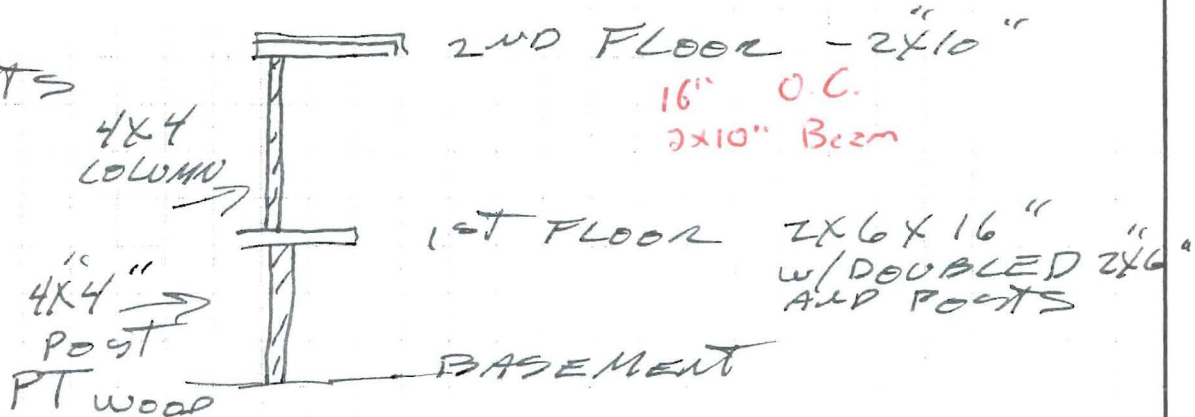 2ND FLOOR - 2"X10"
TS
16" O.C.
2x10" Beam
4X4
COLUMN
1ST FLOOR 2X6X16"
W/DOUBLED 2X6"
AND POSTS
4"X4"
POST
PT WOOD
BASEMENT